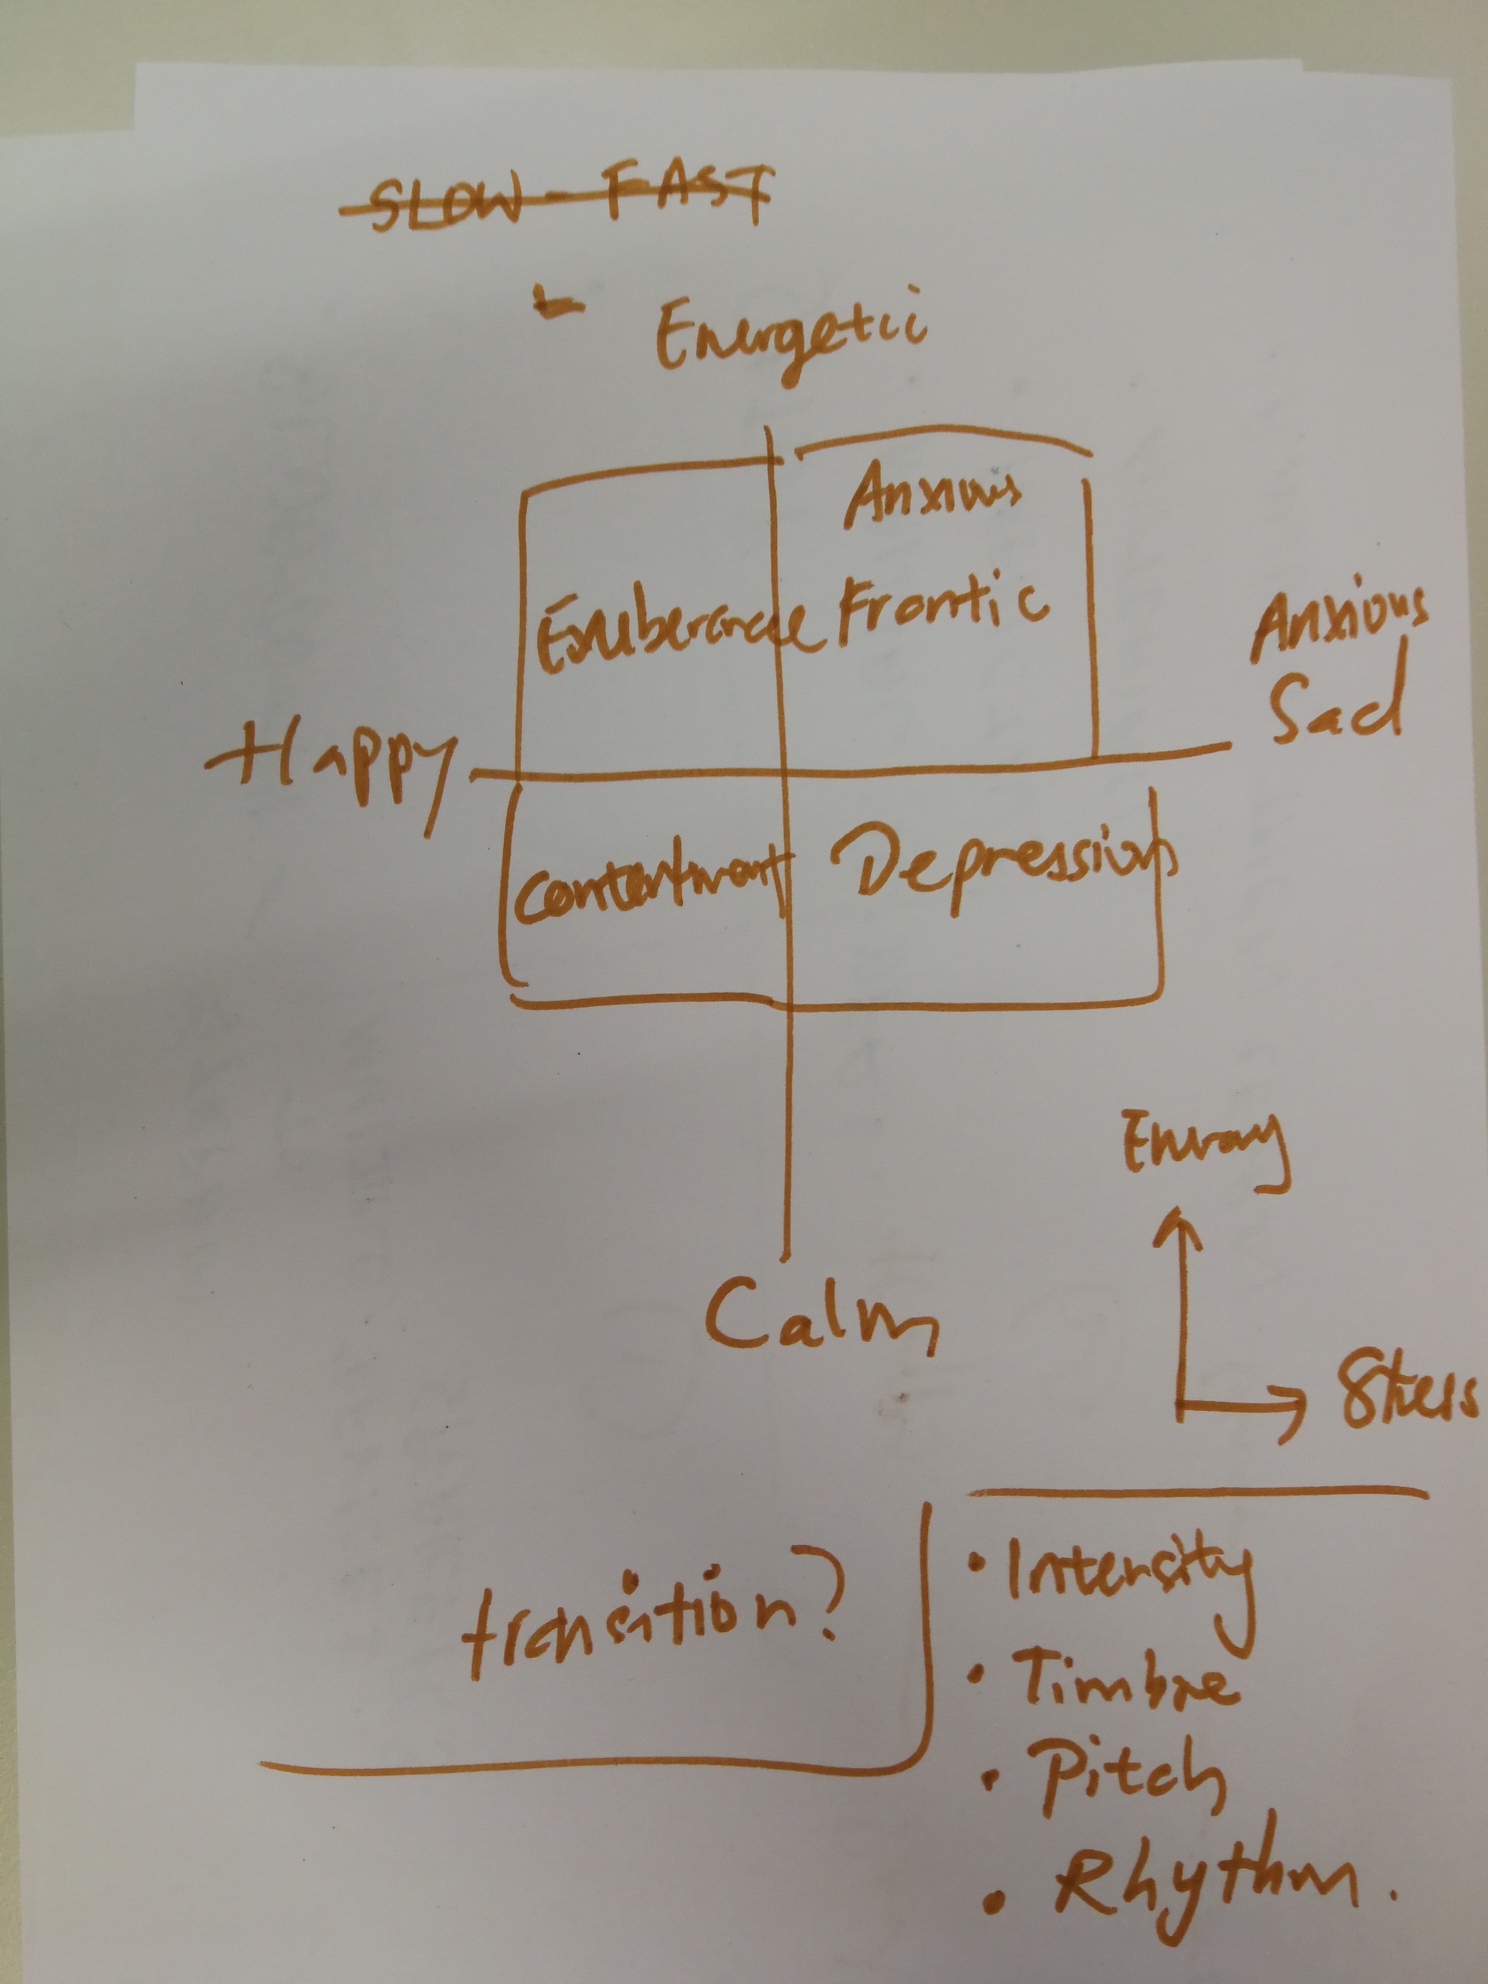 SLOW - FAST
Energetic
Anxious
Exuberance Frantic
Anxious
Sad
Happy
Contentment Depression
Energy
Calm
Stress
transition?
• Intensity
• Timbre
• Pitch
• Rhythm.